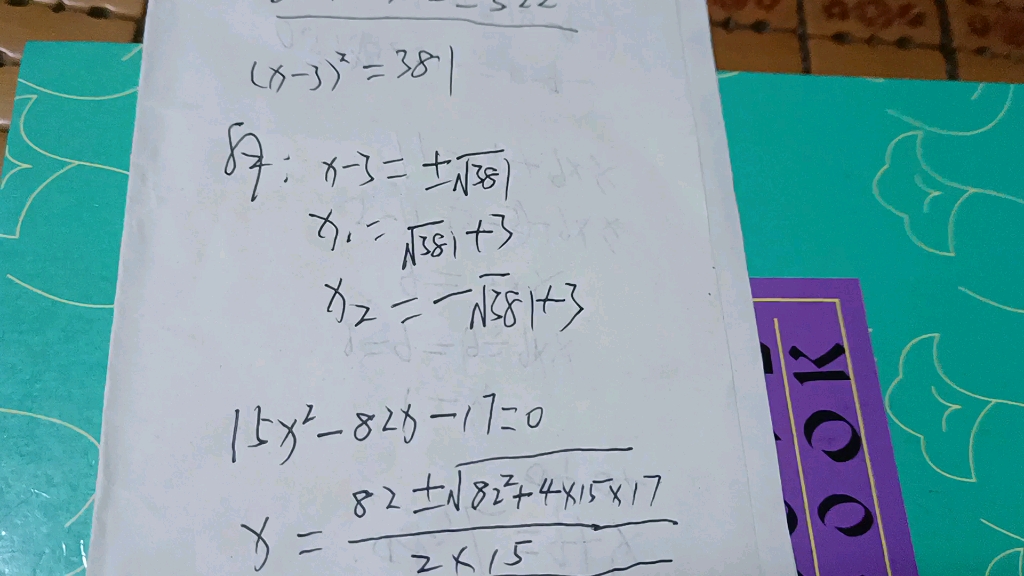 (x-3)²=381
解: x-3=±√381
x₁=√381+3
x₂=-√381+3
15x²-82x-17=0
x=\frac{82±√(82²+4×15×17)}{2×15}
OOK